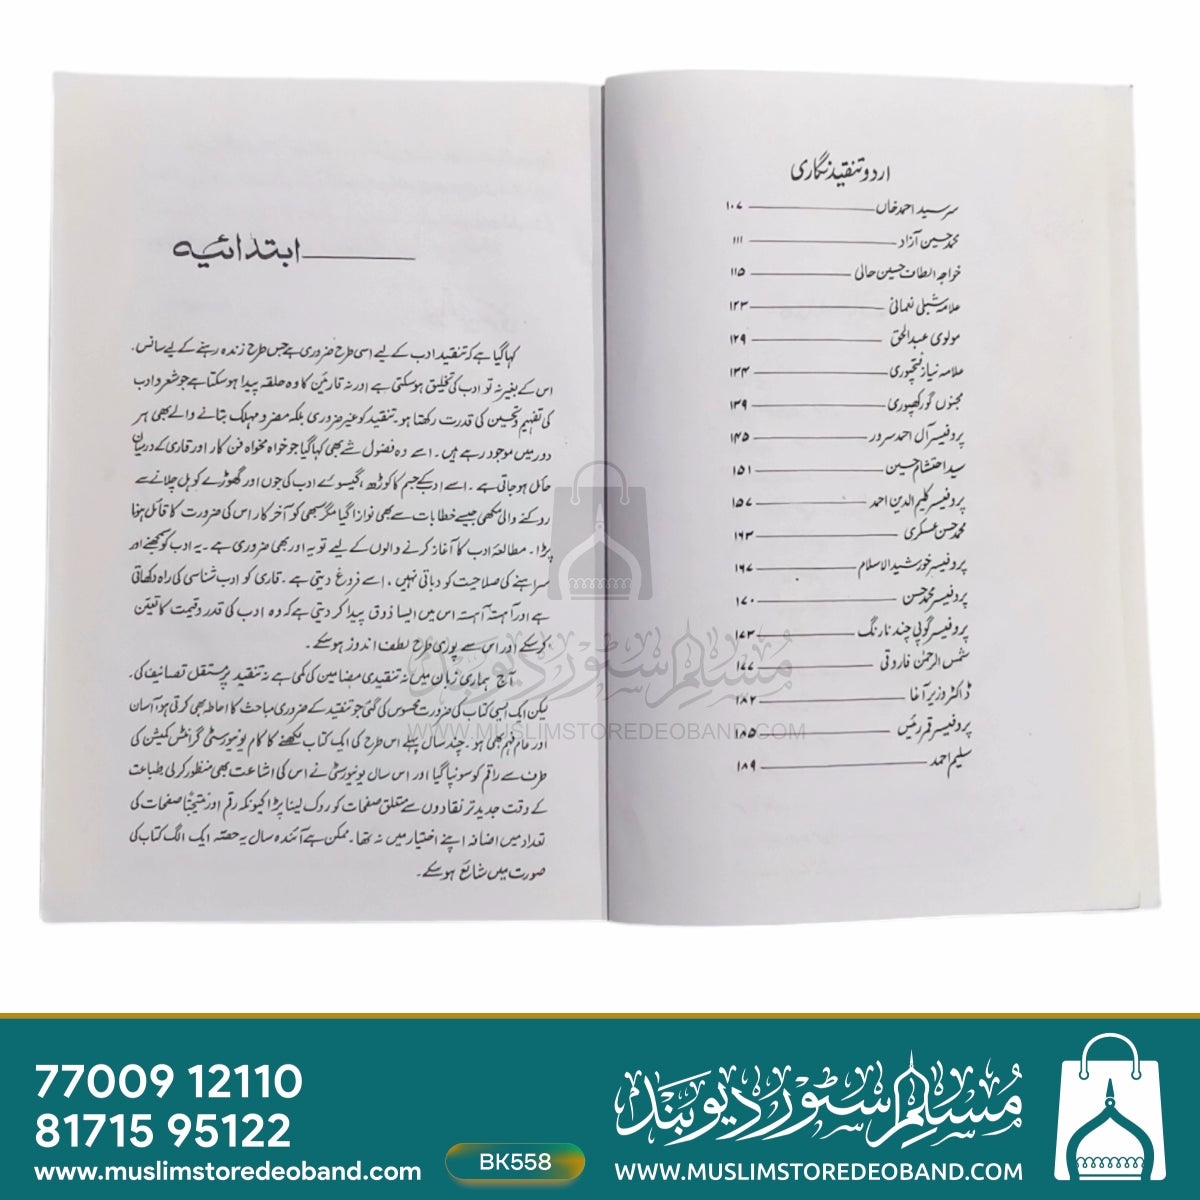 اردو تنقید نگاری
سر سید احمد خاں ۱۰۷
محمد حسین آزاد ۱۱۱
خواجہ الطاف حسین حالی ۱۱۵
علامہ شبلی نعمانی ۱۲۳
مولوی عبدالحق ۱۲۹
علامہ نیاز فتحپوری ۱۳۴
مجنوں گورکھپوری ۱۳۹
پروفیسر آل احمد سرور ۱۴۵
سید احتشام حسین ۱۵۱
پروفیسر کلیم الدین احمد ۱۵۷
محمد حسن عسکری ۱۶۳
پروفیسر خورشید الاسلام ۱۶۷
پروفیسر محمد حسن ۱۷۰
پروفیسر گوپی چند نارنگ ۱۷۳
شمس الرحمٰن فاروقی ۱۷۷
ڈاکٹر وزیر آغا ۱۸۲
پروفیسر قمر رئیس ۱۸۵
سلیم احمد ۱۸۹
ابتدائیہ
کہا گیا ہے کہ تنقید ادب کے لیے اسی طرح ضروری ہے جس طرح زندہ رہنے کے لیے سانس۔
اس کے بغیر نہ تو ادب کی تخلیق ہو سکتی ہے اور نہ قارئین کا وہ حلقہ پیدا ہو سکتا ہے جو شعر و ادب
کی تفہیم و تحسین کی قدرت رکھتا ہو۔ تنقید کو غیر ضروری بلکہ مضر و مہلک بتانے والے بھی ہر
دور میں موجود رہے ہیں۔ اسے وہ فضول شے بھی کہا گیا جو خواہ مخواہ فن کار اور قاری کے درمیان
حائل ہو جاتی ہے۔ اسے ادب کے جسم کا کوڑھ، گیسوئے ادب کی جوں اور گھوڑے کو ہل چلانے سے
روکنے والی مکھی جیسے خطابات سے بھی نوازا گیا مگر سبھی کو آخر کار اس کی ضرورت کا قائل ہونا
پڑا۔ مطالعۂ ادب کا آغاز کرنے والوں کے لیے تو یہ اور بھی ضروری ہے۔ یہ ادب کو سمجھنے اور
سراہنے کی صلاحیت کو دباتی نہیں، اسے فروغ دیتی ہے۔ قاری کو ادب شناسی کی راہ دکھاتی
ہے اور آہستہ آہستہ اس میں ایسا ذوق پیدا کر دیتی ہے کہ وہ ادب کی قدر و قیمت کا تعین
کر سکے اور اس سے پوری طرح لطف اندوز ہو سکے۔
آج ہماری زبان میں نہ تنقیدی مضامین کی کمی ہے نہ تنقید پر مستقل تصانیف کی۔
لیکن ایک ایسی کتاب کی ضرورت محسوس کی گئی جو تنقید کے ضروری مباحث کا احاطہ بھی کرتی ہو، آسان
اور عام فہم بھی ہو۔ چند سال پہلے اس طرح کی ایک کتاب لکھنے کا کام یونیورسٹی گرانٹس کمیشن کی
طرف سے راقم کو سونپا گیا اور اس سال یونیورسٹی نے اس کی اشاعت بھی منظور کر لی۔ طباعت
کے وقت جدید تر نقادوں سے متعلق صفحات کو روک لینا پڑا کیونکہ رقم اور نتیجتاً صفحات کی
تعداد میں اضافہ اپنے اختیار میں نہ تھا۔ ممکن ہے آئندہ سال یہ حصہ ایک الگ کتاب کی
صورت میں شائع ہو سکے۔
مسلم سٹور دیوبند
WWW.MUSLIMSTOREDEOBAND.COM
77009 12110
81715 95122
www.muslimstoredeoband.com
BK558
مسلم سٹور دیوبند
WWW.MUSLIMSTOREDEOBAND.COM